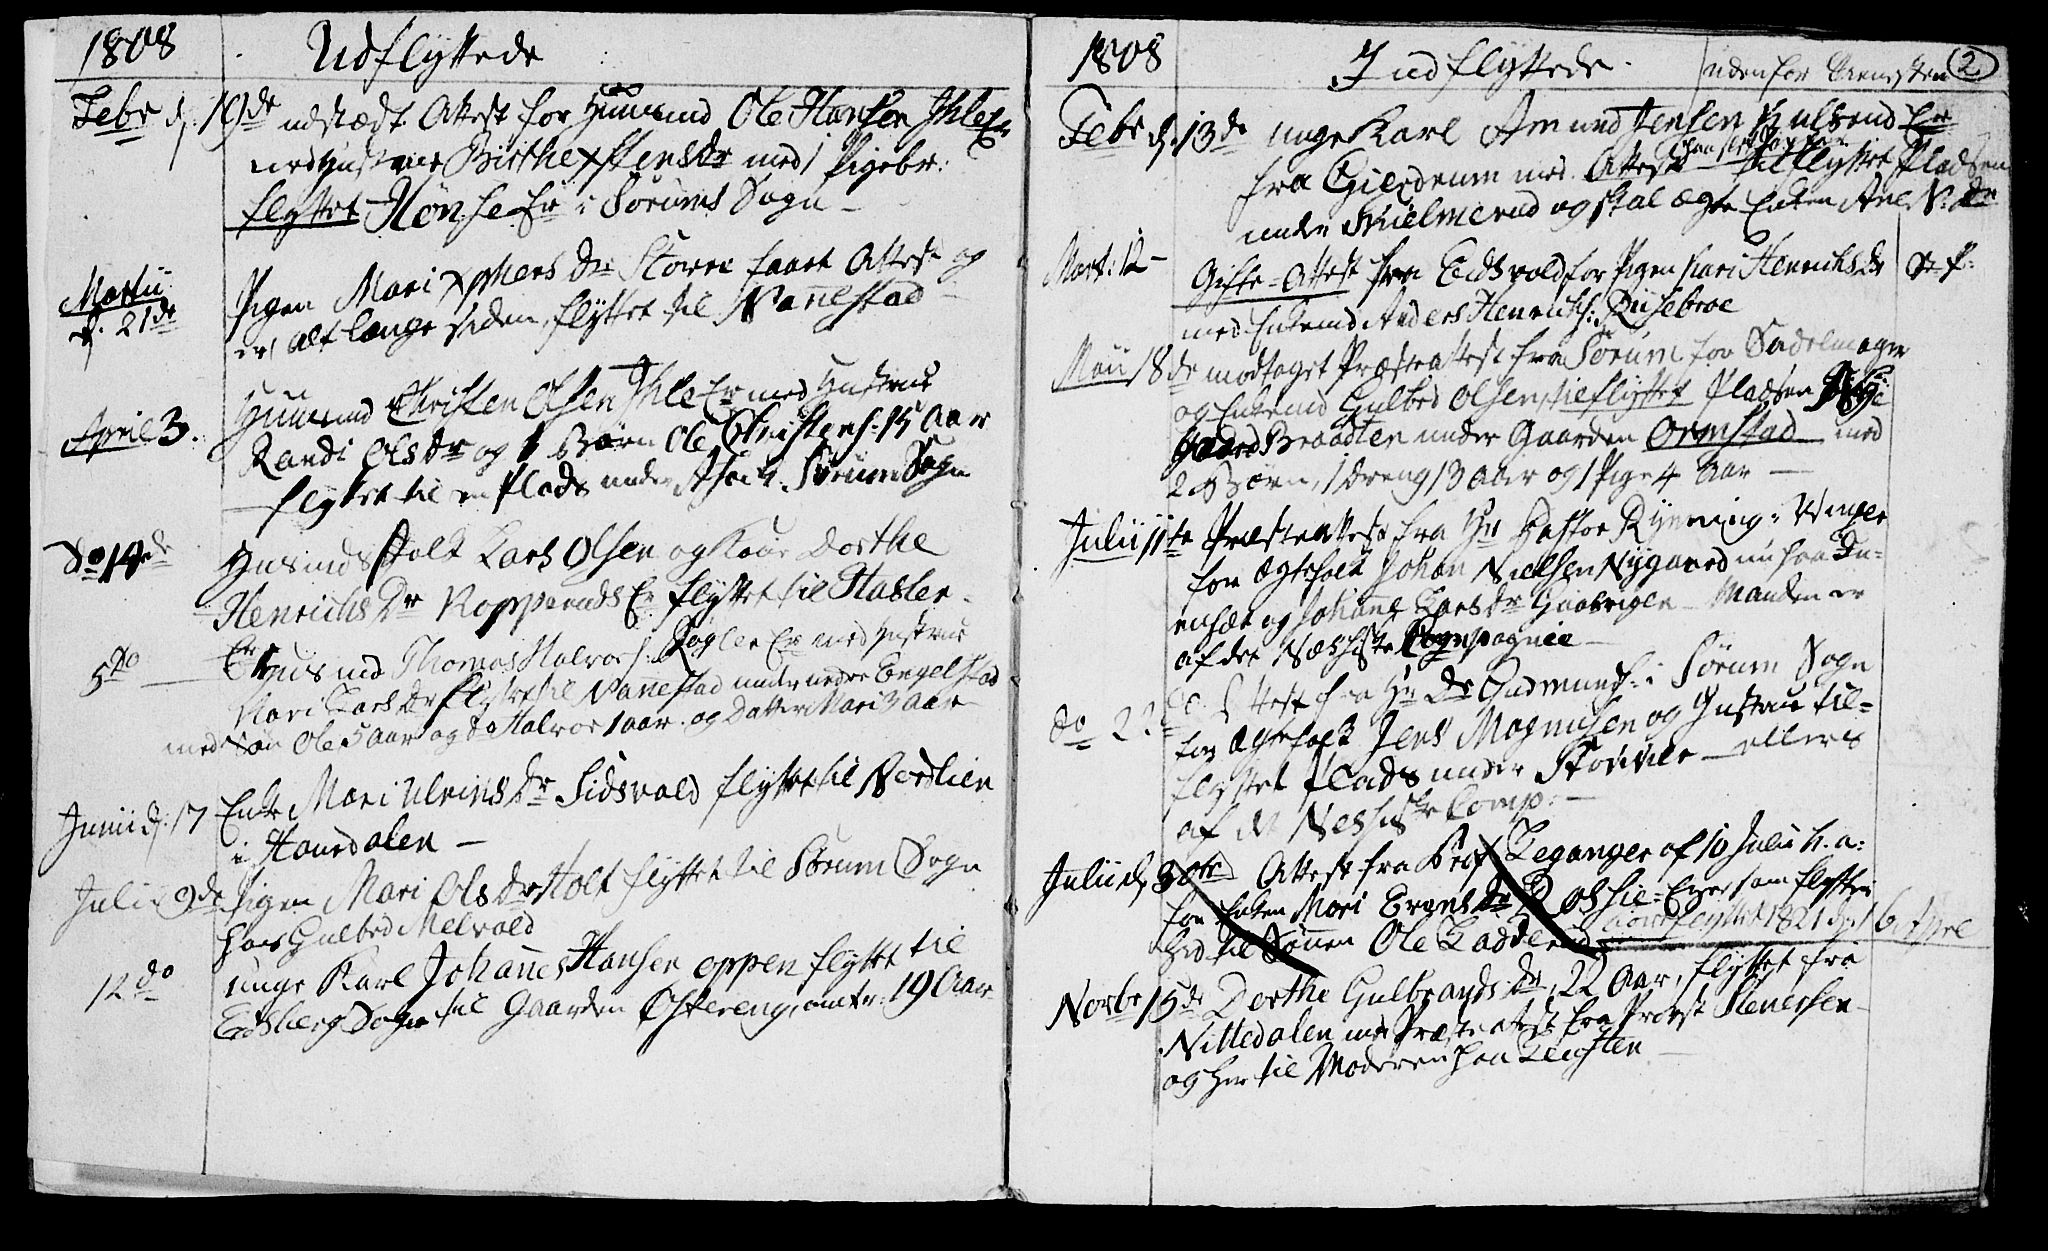 1808 Udflyttede
Febr d. 19de udstædt Attest for Huusmd Ole Hansen Ihle Er
med Hustrue Birthe Xstensdr med 1 Pigebr:
flyttet Hønse Er i Sørums Sogn
Martii d. 21de Pigen Mari Xstensdr faaet Attest og
er alt længe siden flyttet til Nannestad
April 3. Huusmd Christen Olsen Ihle Er med Hustrue
Randi Olsdr og Børn Ole Christens: 15 Aar
flyttet til en Plads under Sørum Sogn
do 14de Huusmds Folk Lars Olsen og Kone Dorthe
Henrichsdr Roppernds Er flyttet til Hasler
5te Huusmd Thomas Halvors: Fogler Er med Hustrue
Mari Larsdr flyttet til Nannestad under nedre Engelstad
med Søn Ole 5 Aar og do Halvor 1 aar og Datter Mari 3 Aar
Junii d. 17 Enke Mari Ulrichsdr Eidsvold flyttet til Nordlien
i Hourdalen
Julii 9de Pigen Mari Olsdr Holt flyttet til Sørum Sogn
hos Gulbrd Melvold
12do unge Karl Johannes Hansen oppen flyttet til
Eidsberg Sogn til Gaarden Østereng, omtr: 19 Aar
1808 Indflyttede. udenfor 2
Febr d. 13de unge Karl Amund Jensen Er
fra Gierdrum med Attest tilflyttet Pladsen
under Skielmerud og skal ægte Enken Ane N: dr
Mart: 12 Gifte-Attest fra Eidsvold for Pigen Kari Henrichsdr
med Enkemd Anders Henrichs: Riisebroe
Maii 18de modtaget Præsteattest fra Sørum for Sadelmager
og Enkemd Gulbrd Olsen tilflyttet Pladsen
Braadten under Gaarden Ormstad med
2 Børn, 1 Dreng 13 Aar og 1 Pige 4 Aar
Julii 11te Præsteattest fra Hr Pastor Rynning: Winger
for Ægtefolk Johan Nielsen Nygaard nu fra
og Johanne Larsdr Manden er
af det Næshiske Compagnie
do 22 Attest fra Hr Dr Gudmunds: i Sørum Sogn
for Ægtefolk Jens Magnusen og Hustrue til-
flyttet Plads under Skovner ellers
af det Neshiske Comp:
Julii d. 30te Attest fra Prof Leganger af 10 Julii h. a:
for Enken Mari Evensdr som flytter
hid til Sønnen Ole Ladderud flyttet 1821 d. 16 April
Novbr 15de Dorthe Gulbrandsdr, 22 Aar, flyttet fra
Nittedalen med Præsteattest fra Provst Stenersen
og her til Moderen hos Leichten